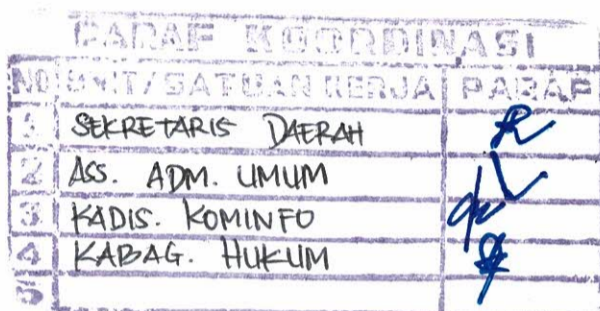 PARAF KOORDINASI
NO UNIT/SATUAN KERJA PARAF
1 SEKRETARIS DAERAH
2 ASS. ADM. UMUM
3 KADIS. KOMINFO
4 KABAG. HUKUM
5